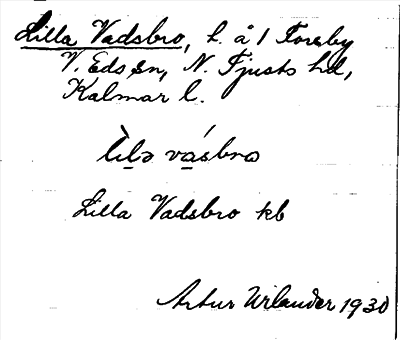 Lilla Vadsbro, l. å 1 Forsby
V. Eds sn, N. Tjusts hd,
Kalmar l.
lìlə vásbro
Lilla Vadsbro kb
Artur Urlander 1930